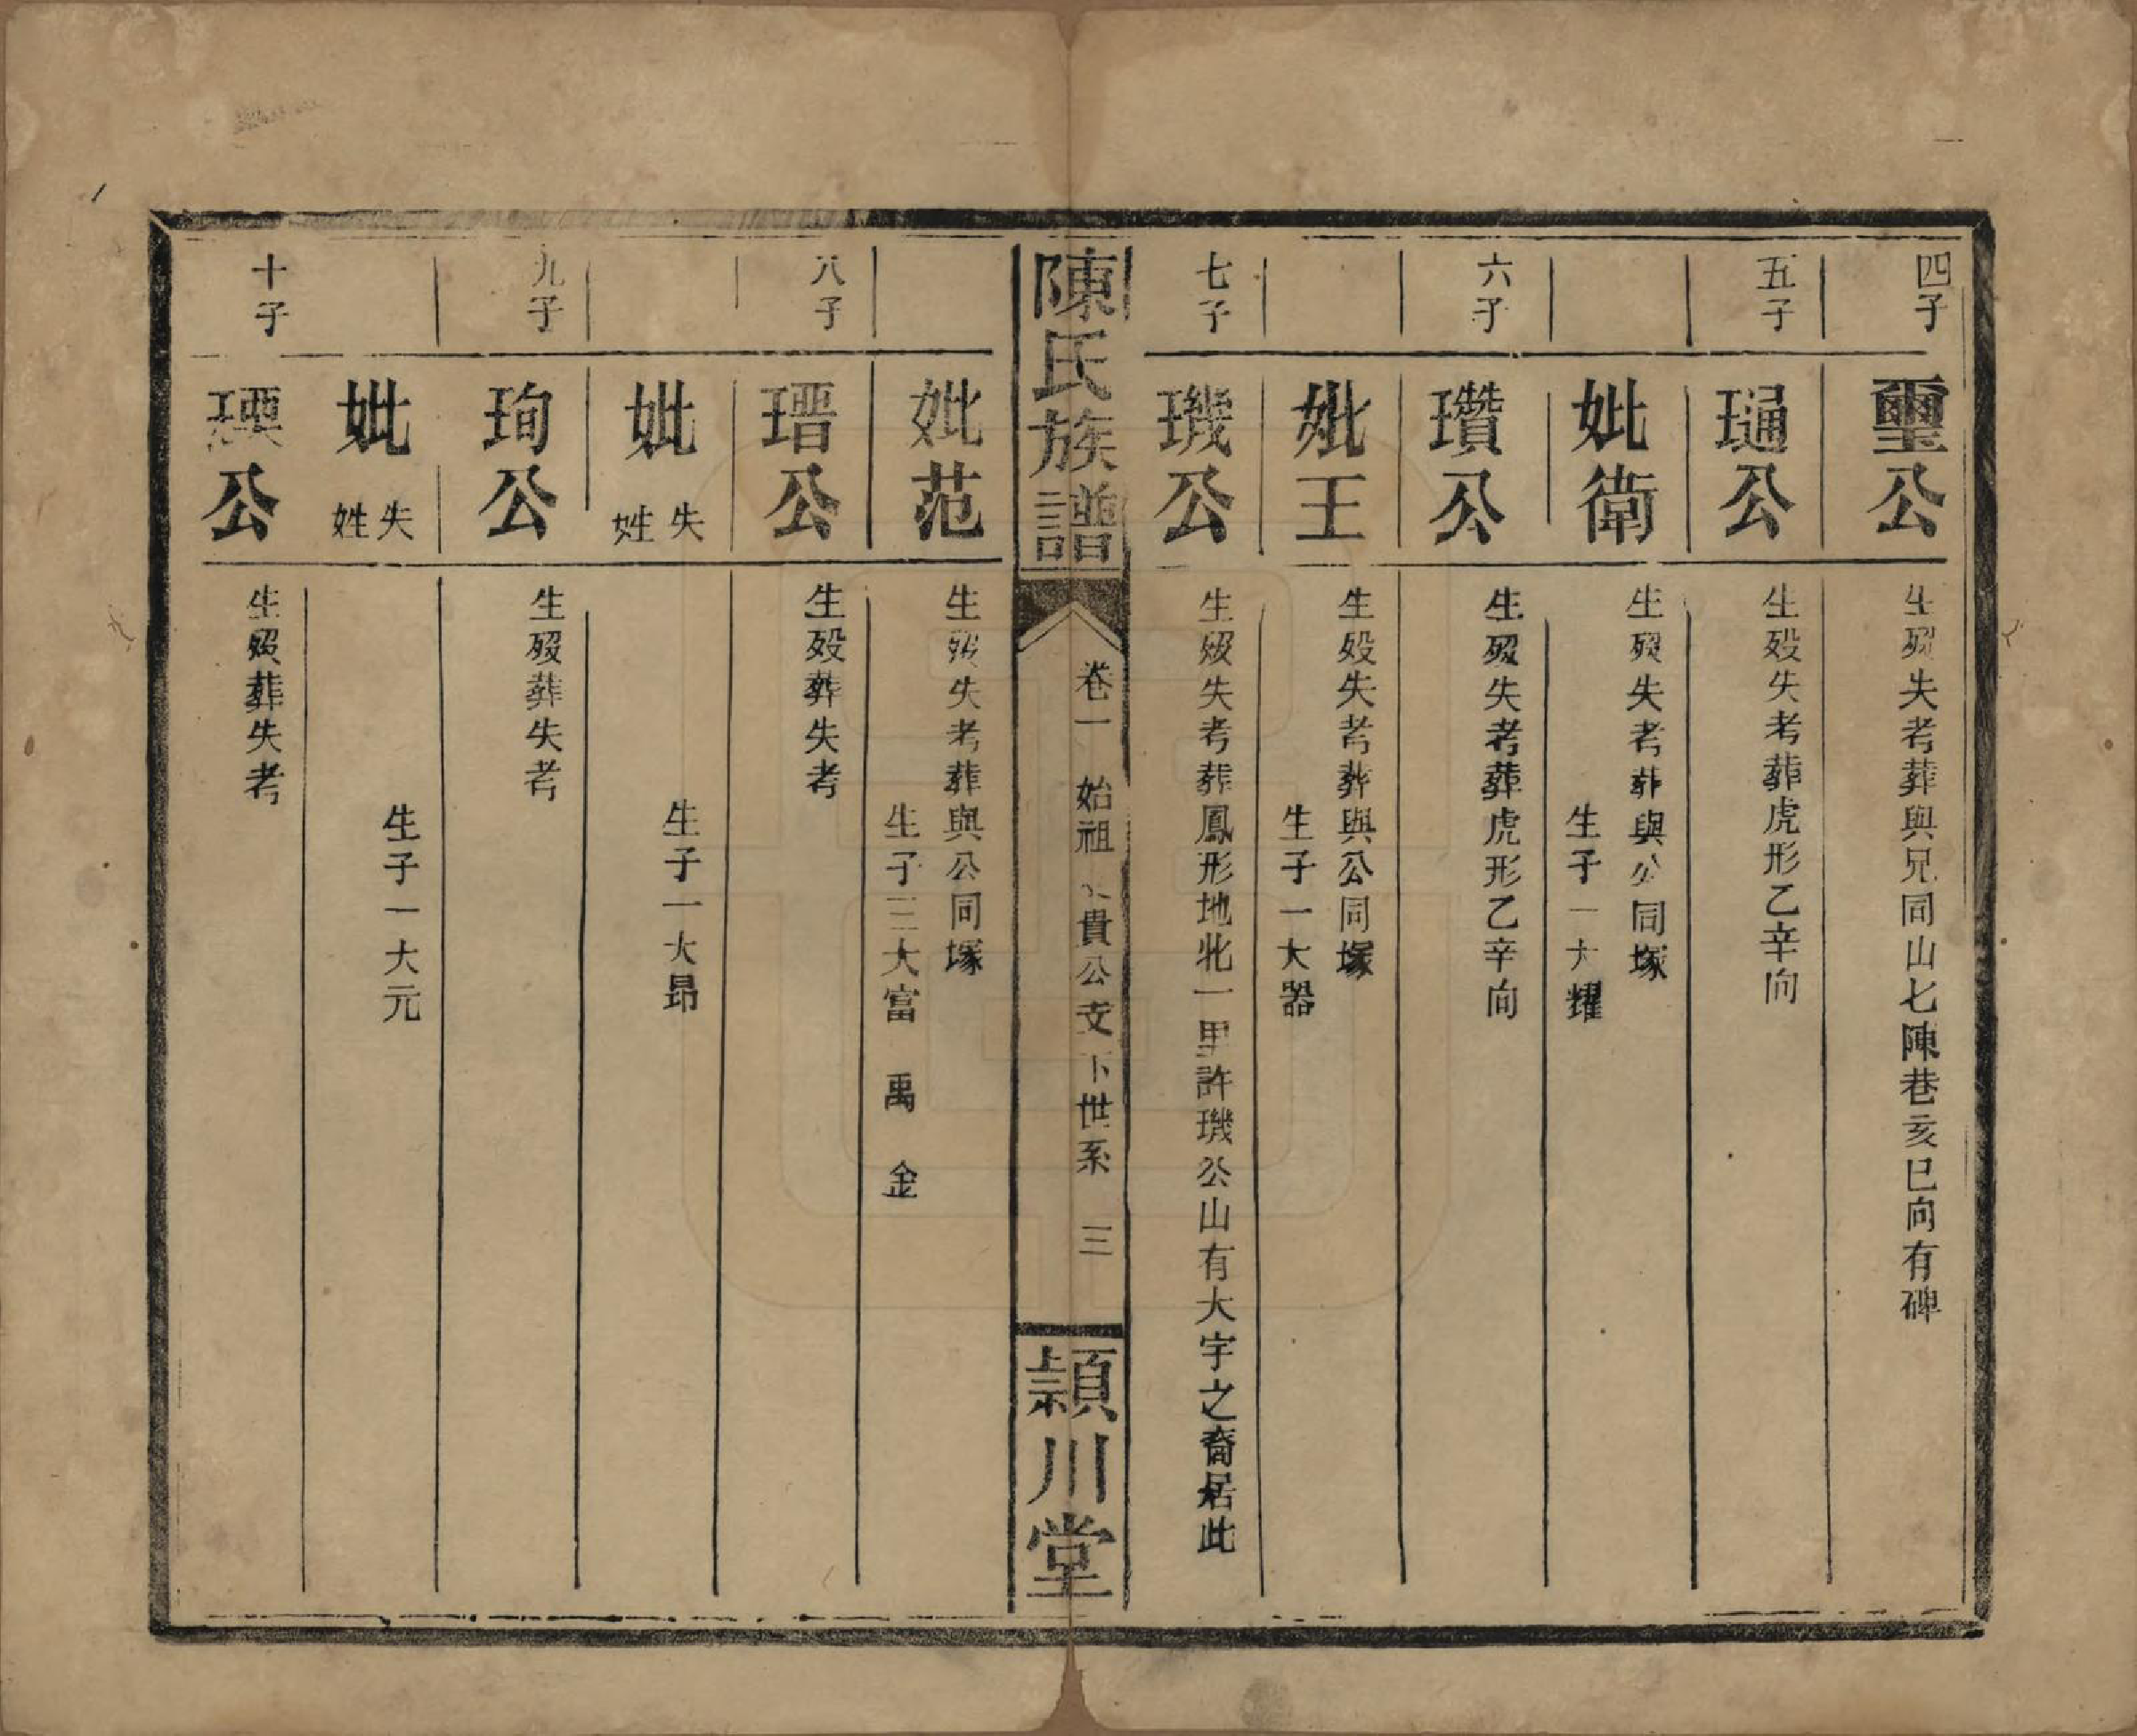 四子
璽公
生歿失考葬與兄同山七陳巷亥巳向有碑
五子
璊公
生歿失考葬虎形乙辛向
妣衛
生歿失考葬與公同塚
生子一大耀
六子
瓚公
生歿失考葬虎形乙辛向
妣王
生歿失考葬與公同塚
生子一大器
七子
璣公
生歿失考葬鳳形地北一里許璣公山有大宇之裔居此
陳氏族譜
卷一 始祖 貴公支下世系 三
潁川堂
妣范
生歿失考葬與公同塚
生子三大富 禹 金
八子
瑨公
生歿葬失考
妣失姓
生子一大昂
九子
珣公
生歿葬失考
妣失姓
生子一大元
十子
公
生歿葬失考